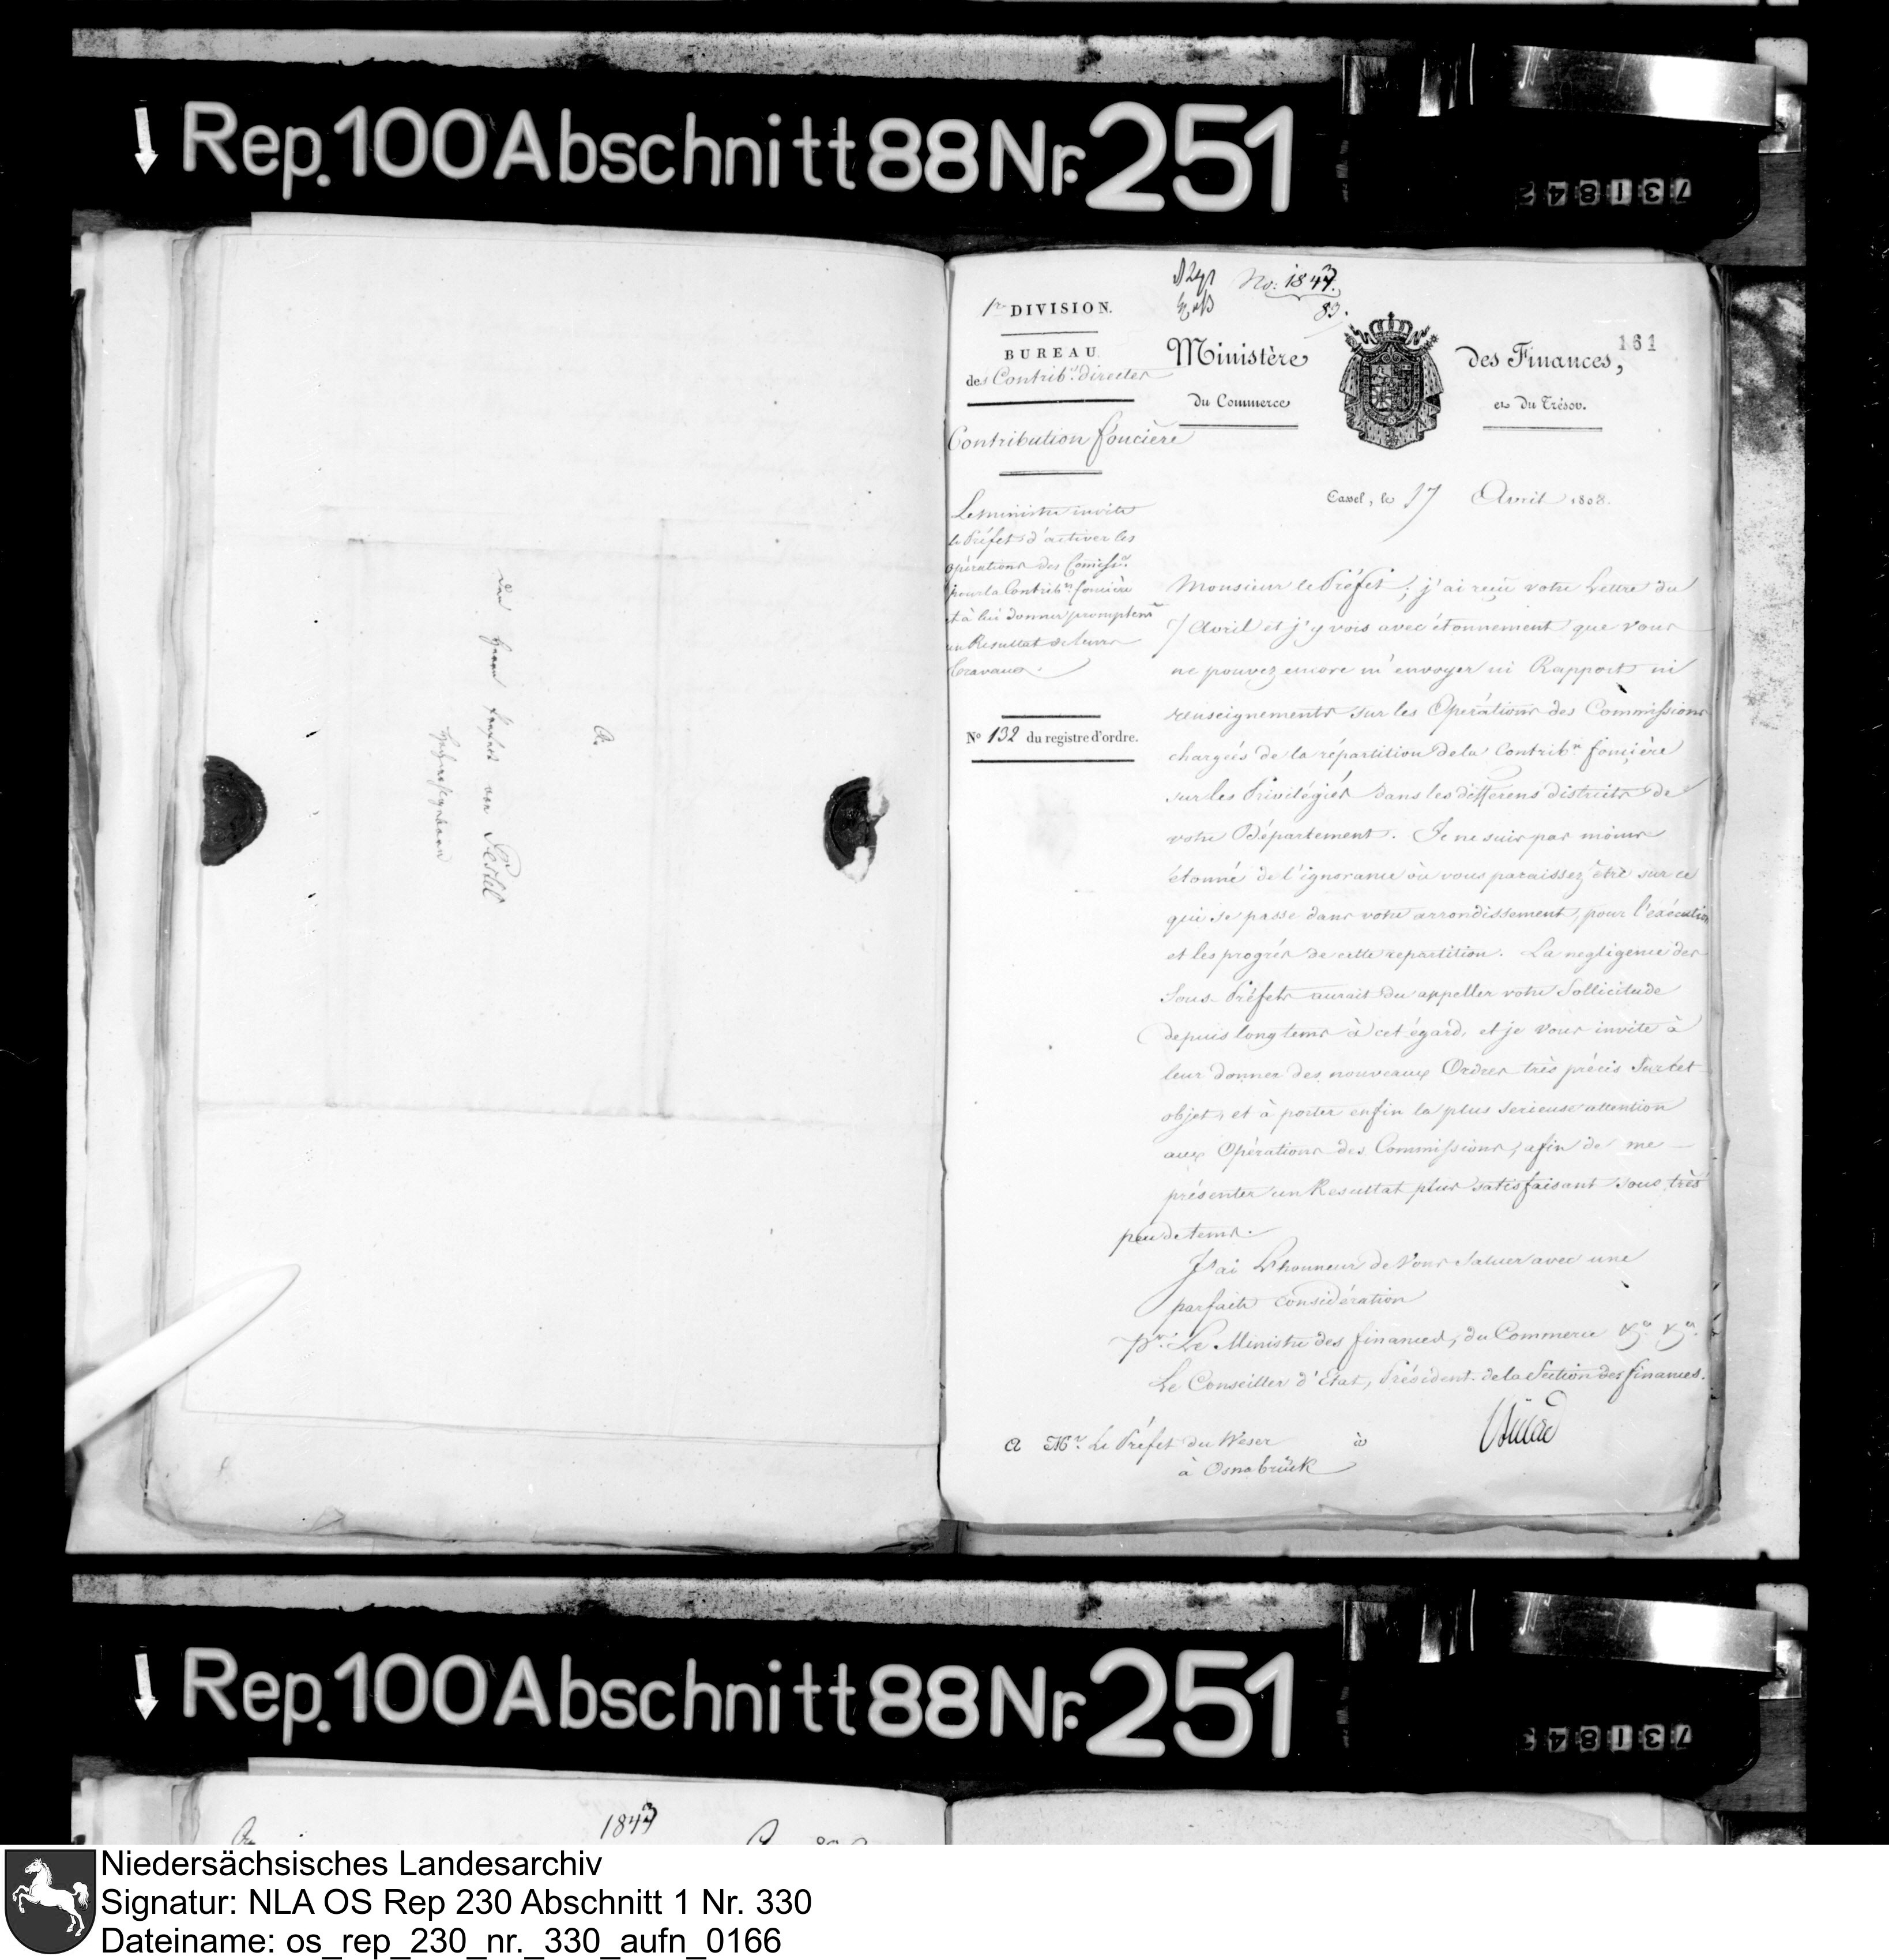 Rep. 100 Abschnitt 88 Nr. 251
731842
A.
den Herrn Praefect von Pestel
Hochwohlgeboren
No: 1843.
83.
1re DIVISION.
BUREAU
des Contribns directes
Ministère des Finances,
161
du Commerce et du Trésor.
Contribution foncière
Cassel, le 17 Avril 1808.
Le ministre invite
le Préfet d'activer les
opérations des Commissns
pour la Contribn foncière
et à lui donner promptemt
un Resultat de leurs
travaux.
No 132 du registre d'ordre.
Monsieur le Préfet; j'ai reçu votre Lettre du
7 Avril et j'y vois avec étonnement que vous
ne pouvez encore m'envoyer ni Rapport ni
renseignements sur les Opérations des Commissions
chargées de la répartition de la Contribn foncière
sur les Privilégiés dans les differens districts de
votre Département. Je ne suis pas moins
étonné de l'ignorance où vous paraissez être sur ce
qui se passe dans votre arrondissement, pour l'exécution
et les progrés de cette repartition. La negligence des
Sous-Préfets aurait du appeller votre Sollicitude
depuis longtems à cet égard, et je vous invite à
leur donner des nouveaux Ordres très précis Sur cet
objet, et à porter enfin la plus serieuse attention
aux Opérations des Commissions, afin de me
présenter un Resultat plus satisfaisant sous très
peu de tems.
J'ai L'honneur de Vous Saluer avec une
parfaite considération
Pr. Le Ministre des finances, du Commerce &a &a.
Le Conseiller d'Etat, Président de la Section des finances.
A Mr. Le Préfet du Weser à
à Osnabrück
Rep. 100 Abschnitt 88 Nr. 251
731843
1843
Niedersächsisches Landesarchiv
Signatur: NLA OS Rep 230 Abschnitt 1 Nr. 330
Dateiname: os_rep_230_nr._330_aufn_0166